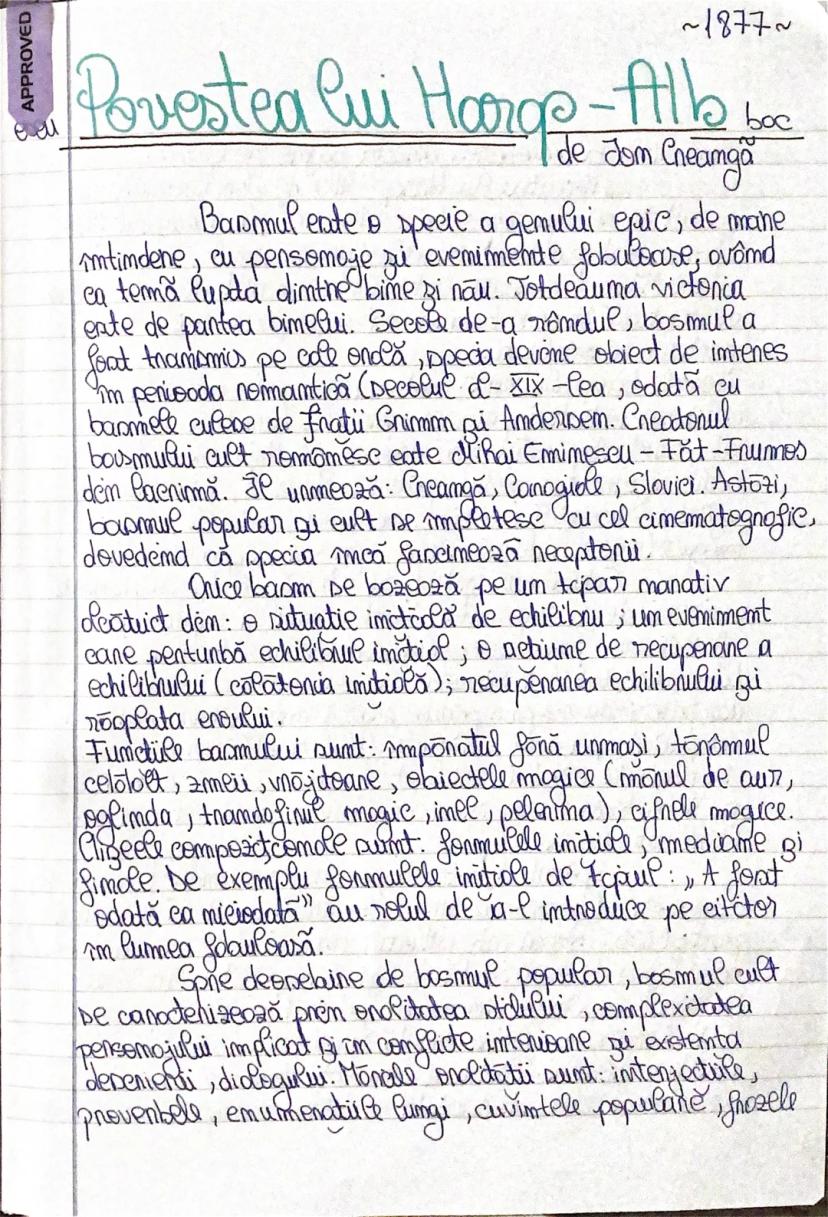 ~1877~
APPROVED
eseu
Povestea lui Harap-Alb bac
de Ion Creangă
Basmul este o specie a genului epic, de mare
întindere, cu personaje și evenimente fabuloase, având
ca temă lupta dintre bine și rău. Totdeauna victoria
este de partea binelui. Secole de-a rândul, basmul a
fost transmis pe cale orală, specia devine obiect de interes
în perioada romantică (secolul al-XIX-lea, odată cu
basmele culese de frații Grimm și Andersen. Creatorul
basmului cult românesc este Mihai Eminescu - Făt-Frumos
din lacrimă. Îl urmează: Creangă, Caragiale, Slavici. Astăzi,
basmul popular și cult se împletesc cu cel cinematografic,
dovedind că specia încă fascinează receptorii.
Orice basm se bazează pe un tipar narativ
alcătuit din: o situatie inițială de echilibru; un eveniment
care perturbă echilibrul inițial; o acțiune de recuperare a
echilibrului (călătoria inițială); recuperarea echilibrului și
răsplata eroului.
Funcțiile basmului sunt: împăratul fără urmași, tărâmul
celălalt, zmeii, vrăjitoare, obiectele magice (mărul de aur,
oglinda, trandafirul magic, inel, pelerina), cifrele magice.
Clișeele compoziționale sunt: formulele inițiale, mediane și
finale. De exemplu formulele inițiale de tipul: „A fost
odată ca niciodată” au rolul de a-l introduce pe cititor
în lumea fabuloasă.
Spre deosebire de basmul popular, basmul cult
se caracterizează prin oralitatea stilului, complexitatea
personajului implicat și în conflicte interioare și existenta
descrierii, dialogului. Mărcile oralității sunt: interjecțiile,
proverbele, enumerațiile lungi, cuvintele populare, frazele